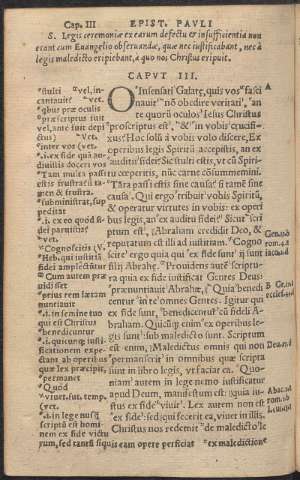 Cap. III EPIST. PAVLI
S. Legis ceremoniæ ex earum defectu & insufficientia non
erant cum Euangelio obseruandæ, quæ nec iustificabant, nec à
legis maledicto eripiebant, à quo nos Christus eripuit.
CAPVT III.
O Insensati Galatę, quis vos fasci
nauit nō obedire veritati, an
te quorū oculos Iesus Christus
proscriptus est, & in vobis crucifi-
xus? Hoc solū à vobis volo discere, Ex
operibus legis Spiritū accepistis, an ex
auditu fidei? Sic stulti estis, vt cū Spiritu
cœperitis, nūc carne cōsummemini.
Tāta passi estis sine causa? si tamē sine
causa. Qui ergo tribuit vobis Spiritū,
& operatur virtutes in vobis: ex operi
bus legis, an ex auditu fidei? Sicut scri
ptum est, Abraham credidit Deo, &
reputatum est illi ad iustitiam. Cogno
scite ergo quia qui ex fide sunt ij sunt
filij Abrahę. Prouidens autē scriptu-
ra quia ex fide iustificat Gentes Deus:
prænuntiauit Abrahæ, Quia benedi
centur in te omnes Gentes. Igitur qui
ex fide sunt, benedicentur cū fideli A-
braham. Quicūq; enim ex operibus le-
gis sunt sub maledicto sunt. Scriptum
est enim, Maledictus omnis qui non
permanserit in omnibus quæ scripta
sunt in libro legis, vt faciat ea. Quo-
niam autem in lege nemo iustificatur
apud Deum, manifestum est: quia iu-
stus ex fide viuit. Lex autem non est
ex fide, sed qui fecerit ea, viuet in illis.
Christus nos redemit de maledicto le
stulti vel, in-
cantauit vet.
vobis quæ
præscriptus fuit
vel, ante fuit depi
ctus vet.
inter vos vet.
i. ex fide quā au-
diuistis docẽte vos
Tam multa passi
estis frustra: si ta-
men & frustra.
subministrat, sup
peditat
vet.
Cognoscitis
Heb. qui iustitiā
fidei amplectūtur
Cum autem præ
uidisset
prius rem lætam
nuntiauit
i. in semine tuo
qui est Christus
benedicuntur
permanet
Quod
viuet. sut. temp.
vet.
i. in lege nusq̄
scriptū est homi-
nem ex fide victu
rum, sed tantū si quis eam opere perficias ex maledictione